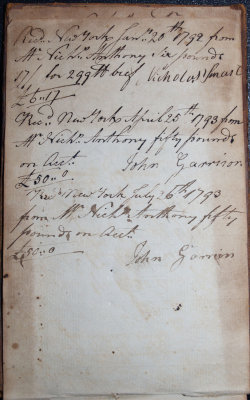 Recd New York Jany 20th 1792 from
Mr Nichs Anthony Six pounds
17/ for 299 lb beef Nicholas
£6-17
Recd New York April 25th 1793 from
Mr Nichs Anthony fifty pounds
on Acct. John Garrison
£50-0
Recd New York July 26th 1793
from Mr Nichs Anthony fifty
pounds on Acct.
£50-0 John Garrison